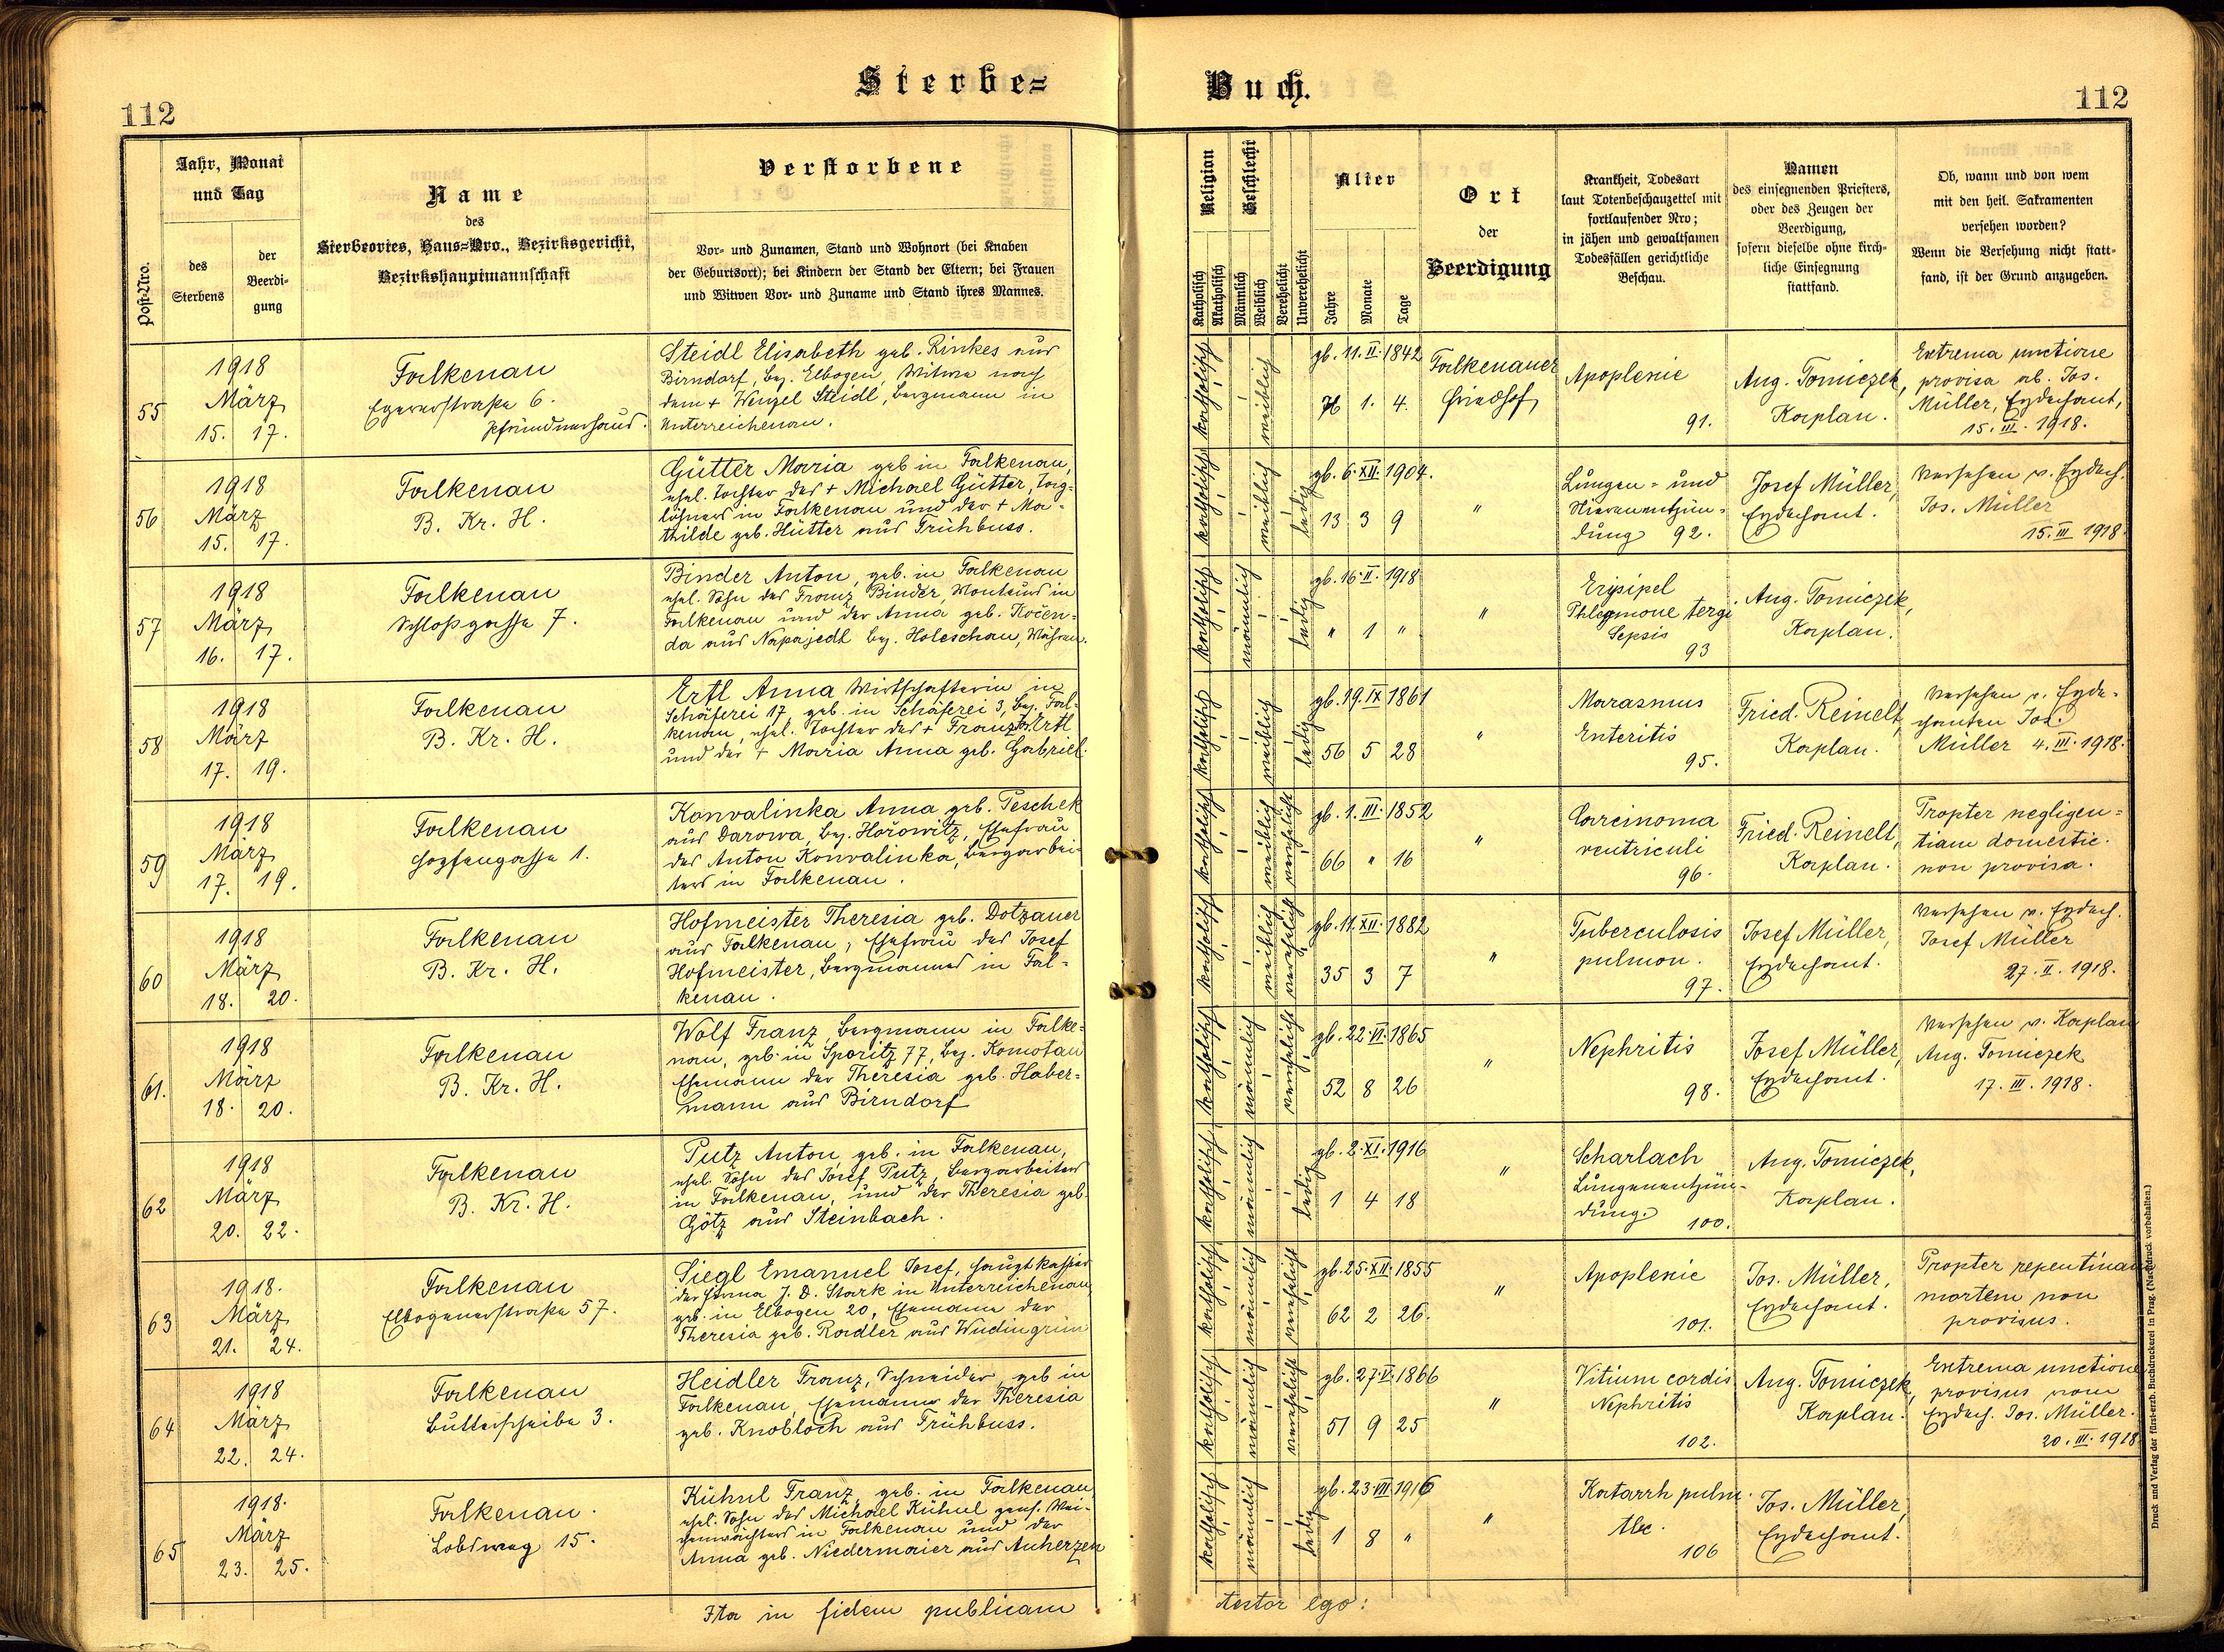 Sterbe=
Buch.
112
112
Post-Nro.
Jahr, Monat
und Tag
des
Sterbens
der
Beerdi-
gung
Name
des
Sterbeortes, Haus=Nro., Bezirksgericht,
Bezirkshauptmannschaft
Verstorbene
Vor- und Zunamen, Stand und Wohnort (bei Knaben
der Geburtsort); bei Kindern der Stand der Eltern; bei Frauen
und Witwen Vor- und Zuname und Stand ihres Mannes.
Religion
Katholisch
Akatholisch
Geschlecht
Männlich
Weiblich
Verehelicht
Unverehelicht
Alter
Jahre
Monate
Tage
Ort
der
Beerdigung
Krankheit, Todesart
laut Totenbeschauzettel mit
fortlaufender Nro;
in jähen und gewaltsamen
Todesfällen gerichtliche
Beschau.
Namen
des einsegnenden Priesters,
oder des Zeugen der
Beerdigung,
sofern dieselbe ohne kirch-
liche Einsegnung
stattfand.
Ob, wann und von wem
mit den heil. Sakramenten
versehen worden?
Wenn die Versehung nicht statt-
fand, ist der Grund anzugeben.
55
1918
März
15. 17.
Falkenau
Egererstraße 6.
Pfründnerhaus.
Steidl Elisabeth geb. Rinkes aus
Birndorf, Bez. Elbogen, Witwe nach
dem + Wenzel Steidl, Bergmann in
Unterreichenau.
katholisch
weiblich
gb. 11. II. 1842
76 1. 4.
Falkenauer
Friedhof
Apoplexie
91.
Aug. Tomiczek,
Kaplan.
Extrema unctione
provisa ab. Jos.
Müller, Erzdechant,
15. III. 1918.
56
1918
März
15. 17.
Falkenau
B. Kr. H.
Gütter Maria geb in Falkenau,
ehel. Tochter des + Michael Gütter, Tag=
löhners in Falkenau und der + Ma=
thilde geb. Hütter aus Frühbuss.
katholisch
weiblich
ledig
gb. 6. XII. 1904.
13 3 9
"
Lungen= und
Nierenentzün=
dung 92.
Josef Müller,
Erzdechant.
Versehen v. Erzdech.
Jos. Müller
15. III 1918.
57
1918
März
16. 17.
Falkenau
Schloßgasse 7.
Binder Anton, geb. in Falkenau
ehel. Sohn des Franz Binder, Monteurs in
Falkenau und der Anna geb. Kočen=
da aus Napajedl bez. Holeschau, Mähren.
katholisch
männlich
ledig
gb. 16. II. 1918
" 1 "
"
Erysipel
Phlegmone tergi
Sepsis
93
Aug. Tomiczek,
Kaplan.
58
1918
März
17. 19.
Falkenau
B. Kr. H.
Ertl Anna Wirtschafterin in
Schäferei 17 geb. in Schäferei 3, Bez. Fal=
kenau, ehel. Tochter des + Franz Jos. Ertl
und der + Maria Anna geb. Gabriel.
katholisch
weiblich
ledig
gb. 19. IX 1861
56 5 28
"
Marasmus
Enteritis
95.
Fried. Reinelt,
Kaplan.
Versehen v. Erzde=
chanten Jos.
Müller 4. III. 1918.
59
1918
März
17. 19.
Falkenau
Hopfengasse 1.
Konvalinka Anna geb. Peschek
aus Darowa, bez. Hořowitz, Ehefrau
des Anton Konvalinka, Bergarbei=
ters in Falkenau.
katholisch
weiblich
verehelicht
gb. 1. III. 1852
66 " 16
"
Carcinoma
ventriculi
96.
Fried. Reinelt,
Kaplan.
Propter negligen=
tiam domestic.
non provisa.
60
1918
März
18. 20.
Falkenau
B. Kr. H.
Hofmeister Theresia geb. Dotzauer
aus Falkenau, Ehefrau des Josef
Hofmeister, Bergmannes in Fal=
kenau.
katholisch
weiblich
verehelicht
gb. 11. XII. 1882
35 3 7
"
Tuberculosis
pulmon.
97.
Josef Müller,
Erzdechant.
Versehen v. Erzdech.
Josef Müller
27. II. 1918.
61.
1918
März
18. 20.
Falkenau
B. Kr. H.
Wolf Franz Bergmann in Falke=
nau, geb. in Sporitz 77, Bez. Komotau
Ehemann der Theresia geb. Haber=
mann aus Birndorf
katholisch
männlich
verehelicht
gb. 22. VI. 1865
52 8 26
"
Nephritis
98.
Josef Müller,
Erzdechant.
Versehen v. Kaplan
Aug. Tomiczek
17. III. 1918.
62
1918
März
20. 22.
Falkenau
B. Kr. H.
Putz Anton, geb. in Falkenau,
ehel. Sohn des Josef Putz, Bergarbeiters
in Falkenau, und der Theresia geb.
Götz aus Steinbach.
katholisch
männlich
ledig
gb. 2. XI. 1916
1 4 18
"
Scharlach
Lungenentzün-
dung. 100.
Aug. Tomiczek,
Kaplan.
63
1918.
März
21. 24.
Falkenau
Elbogenerstraße 57.
Siegl Emanuel Josef, Hauptkassier
der Firma J. D. Stark in Unterreichenau
geb. in Elbogen 20, Ehemann der
Theresia geb. Radler aus Wudingrün
katholisch
männlich
verehelicht
gb. 25. XII. 1855
62 2 26.
"
Apoplexie
101.
Jos. Müller,
Erzdechant.
Propter repentinam
mortem non
provisus.
64
1918
März
22. 24.
Falkenau
Butterscheibe 3.
Heidler Franz, Schneider, geb in
Falkenau, Ehemann der Theresia
geb. Knobloch aus Frühbuss.
katholisch
männlich
verehelicht
gb. 27. V. 1866
51 9 25
"
Vitium cordis
Nephritis
102.
Aug. Tomiczek,
Kaplan.
Extrema unctione
provisus vom
Erzdech. Jos. Müller.
20. III. 1918
65
1918.
März
23. 25.
Falkenau.
Lobsweg 15.
Kühnl Franz, geb. in Falkenau
ehel. Sohn des Michael Kühnl pens. Wei=
chenwächters in Falkenau und der
Anna geb. Niedermaier aus Auherzen
katholisch
männlich
ledig
gb. 23. VII 1916
1 8 "
"
Katarrh pulm.
tbc.
106
Jos. Müller,
Erzdechant.
Ita in fidem publicam
testor ego:
Druck und Verlag der fürst-erzb. Buchdruckerei in Prag. (Nachdruck vorbehalten.)